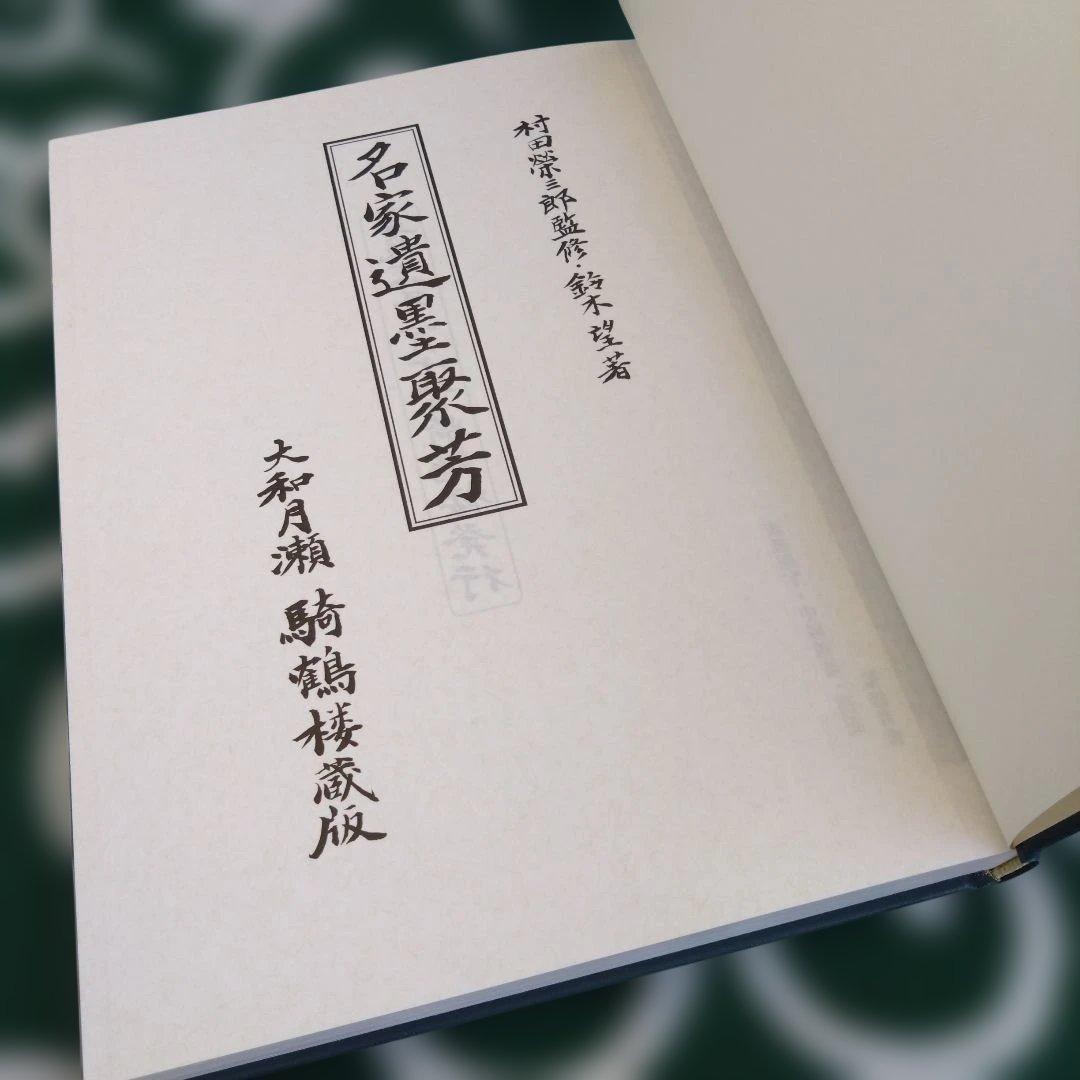 村田榮三郎監修・鈴木望著
名家遺墨聚芳
大和月瀬 騎鶴楼蔵版
発行